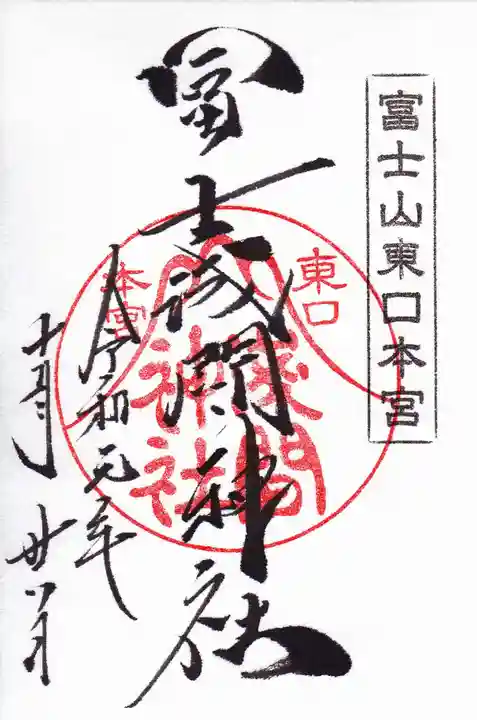 富士山東口本宮
冨士浅間神社
東口
本宮
浅間
神社
令和元年
月 廿八日